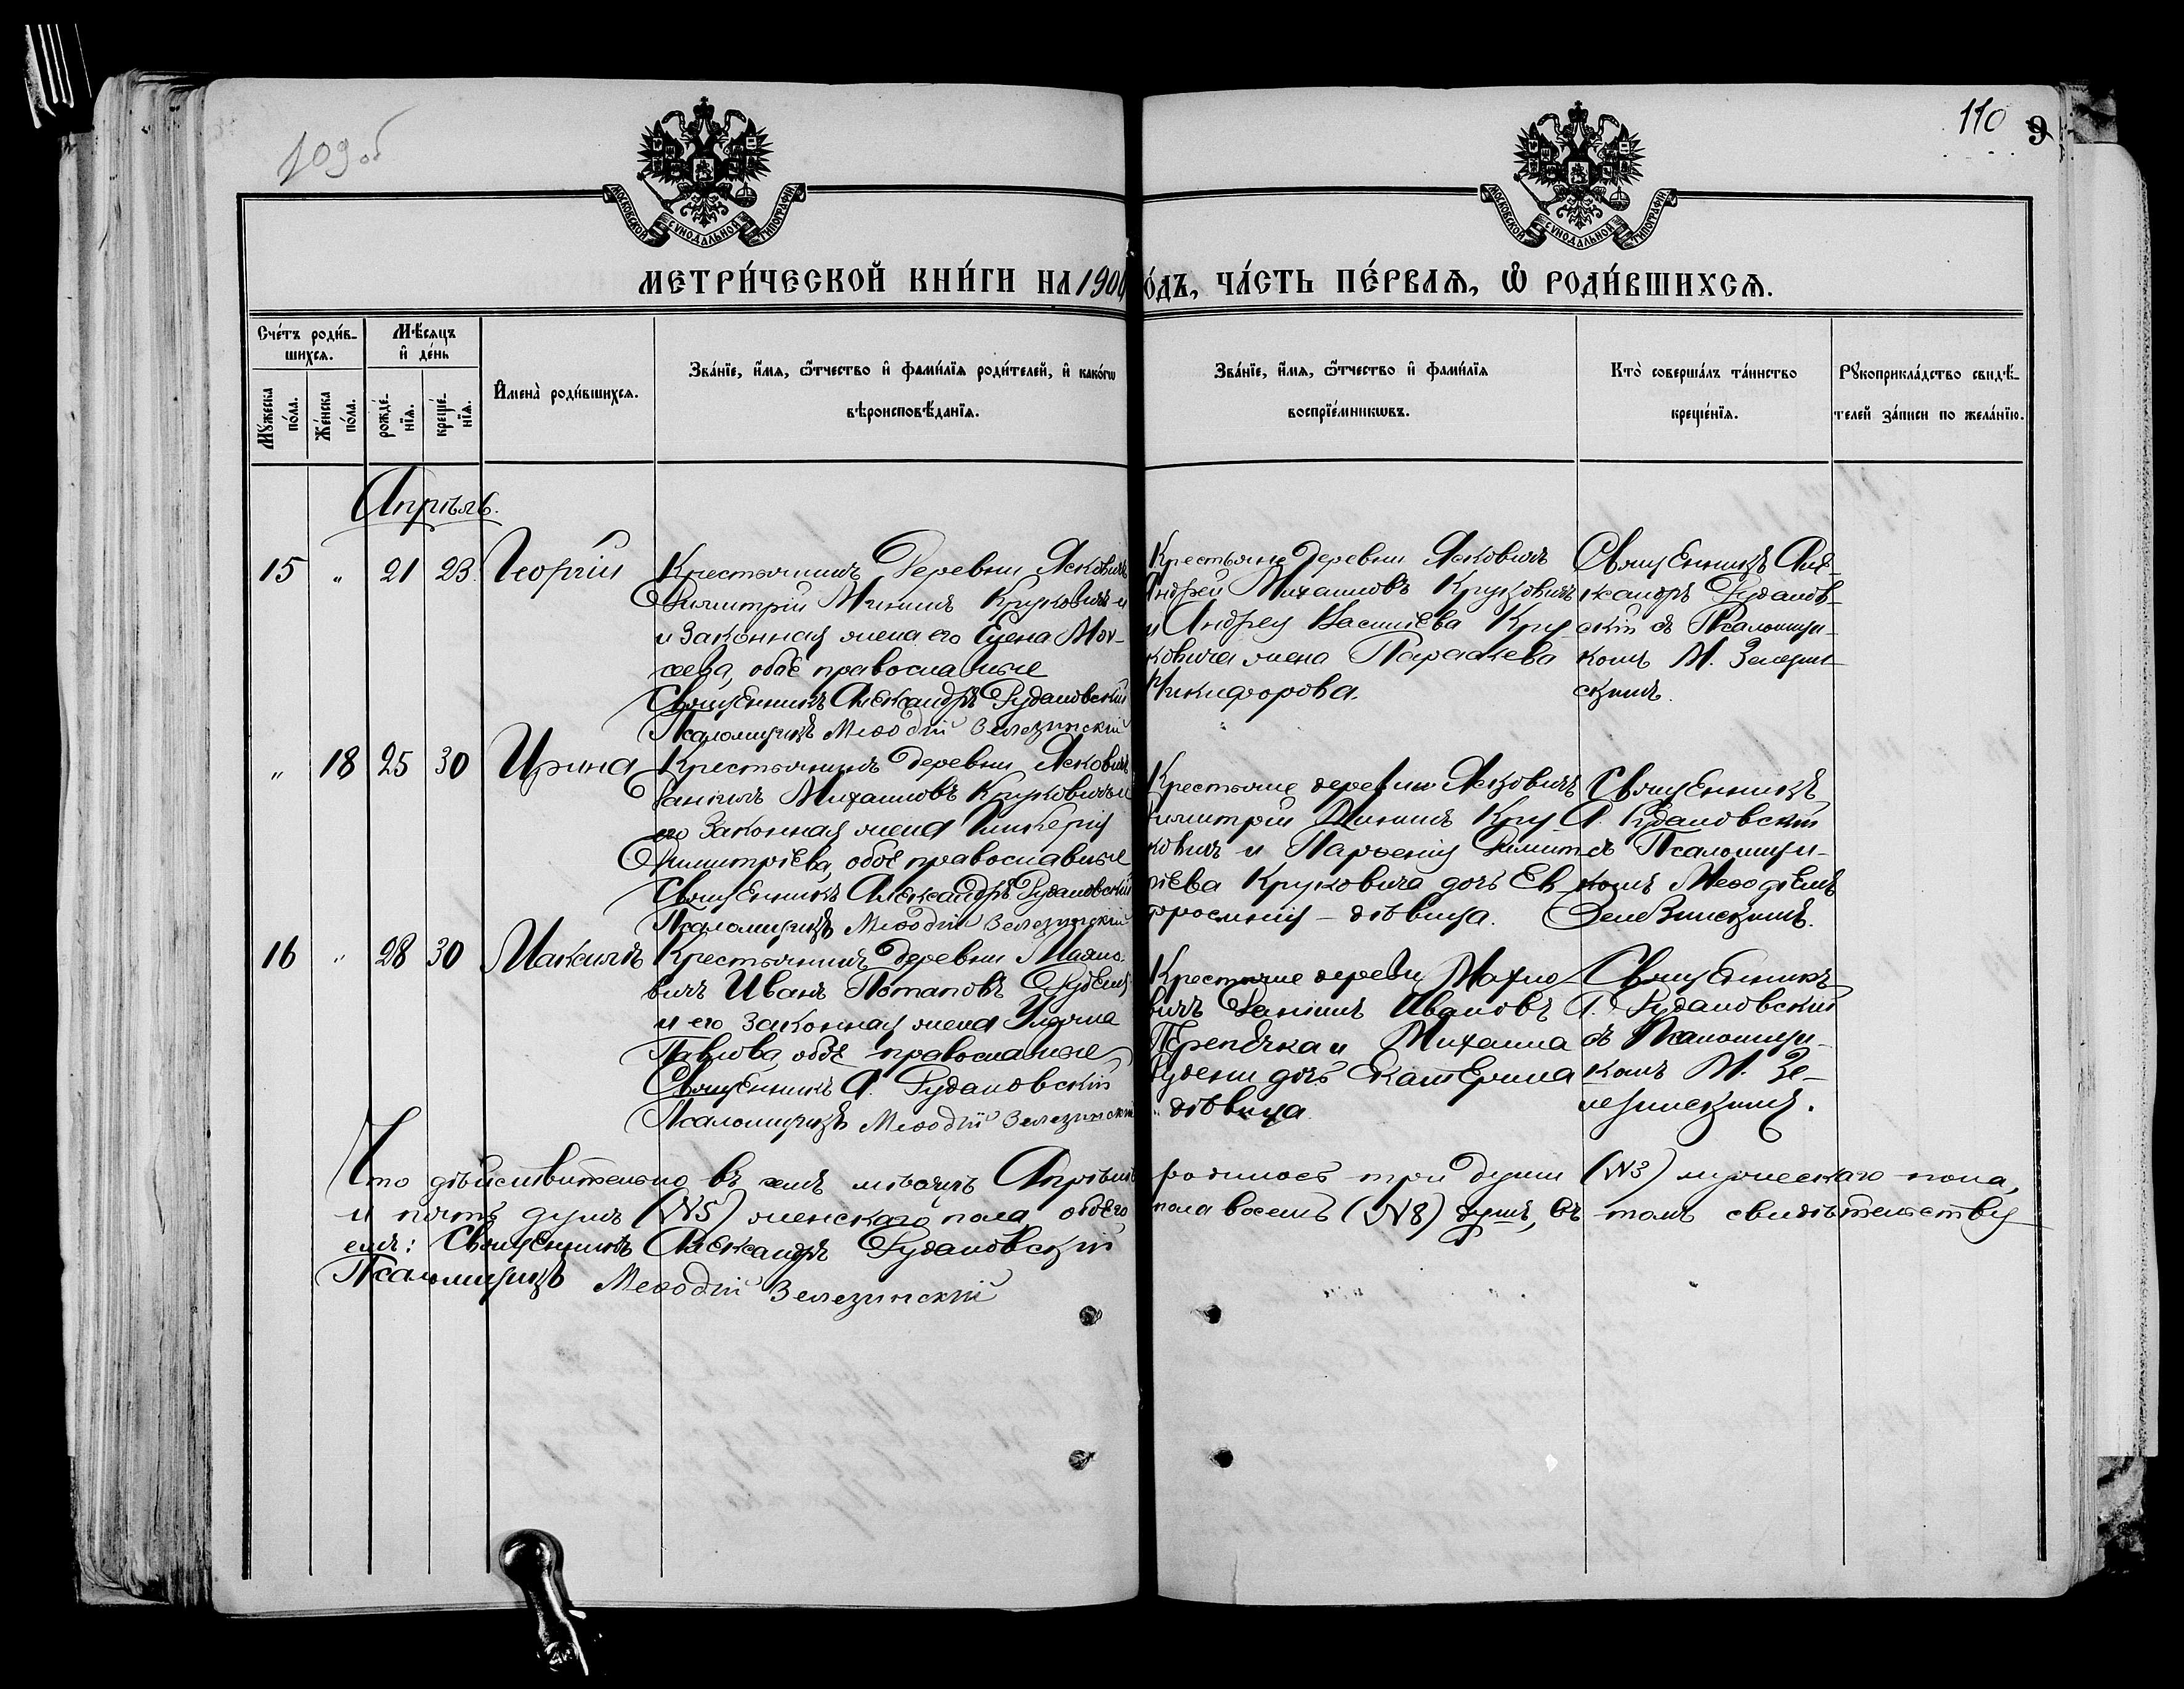 109 об
110
9
МОСКОВСКОЙ СѴНОДАЛЬНОЙ ТИПОГРАФІИ
МОСКОВСКОЙ СѴНОДАЛЬНОЙ ТИПОГРАФІИ
МЕТРИ́ЧЕСКОЙ КНИ́ГИ НА 190
О́ДЪ, ЧА́СТЬ ПЕ́РВАѦ, Ѡ҆ РОДИ́ВШИХСѦ.
Сче́тъ роди́в-
шихсѧ.
Мꙋ́жеска по́ла.
Же́нска по́ла.
Мѣ́сѧцъ
и҆ де́нь
рожде́-нїѧ.
креще́-нїѧ.
И҆мена̀ роди́вшихсѧ.
Зва́нїе, и҆́мѧ, ѻ҆́тчество и҆ фами́лїѧ роди́телей, и҆ како́гѡ
вѣроисповѣ́данїѧ.
Зва́нїе, и҆́мѧ, ѻ҆́тчество и҆ фами́лїѧ
воспрїе́мникѡвъ.
Кто̀ соверша́лъ та́инство
креще́нїѧ.
Рꙋкоприкла́дство свидѣ́-
телей за́писи по жела́нїю.
Апрѣль.
15 " 21 23. Георгій
Крестьянинъ Деревни Ясковичъ
Димитрій Мининъ Круковичъ и
и законная жена его Елена Мои-
сеева, обоє православные
Священникъ Александръ Рудановскій
Псаломщикъ Меѳодій Зелезинскій
Крестьяне Деревни Ясковичъ
Андрей Михаиловъ Круковичъ
и Андрея Васильева Кру-
ковича жена Параскева
Никифорова.
Священникъ Але-
ксандръ Рудановс-
кій съ Псаломщи-
комъ М. Зелезин-
скимъ.
" 18 25 30 Ирина
Крестьянинъ деревни Ясковичъ
Даніилъ Михаиловъ Круковичъ и
его законная жена Гликерія
Димитріева, обоє православные
Священникъ Александръ Рудановскій
Псаломщикъ Меѳодій Зелезинскій
Крестьяне деревни Ясковичъ
Димитрій Мининъ Кру-
ковичъ и Парѳенія Димит-
ріева Круковича дочь Ев-
фросинія - дѣвица.
Священникъ
А. Рудановскій
съ Псаломщи-
комъ Меѳодіемъ
Зелезинскимъ.
16 " 28 30 Максимъ
Крестьянинъ деревни
вичъ Иванъ Потаповъ
и его законная жена
Павлова, обоє православные
Священникъ А. Рудановскій
Псаломщикъ Меѳодій Зелезинскій
Крестьяне деревни
вичъ Даніилъ Ивановъ
и Михаила
дочь Катерина
дѣвица.
Священникъ
А. Рудановскій
съ Псаломщи-
комъ М. Зе-
лезинскимъ.
Что дѣйствительно въ семъ мѣсяцѣ Апрѣлѣ родилось три души (№3) мужескаго пола,
и пять душъ (№5) женскаго пола обоего пола восемъ (№8) душъ, въ томъ свидѣтельству
емъ: Священникъ Александръ Рудановскій
Псаломщикъ Меѳодій Зелезинскій